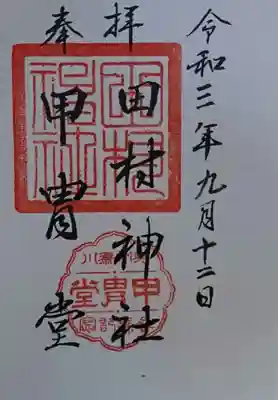 令和三年九月十二日
奉拝
田村神社
甲冑堂
田村神社
甲冑堂